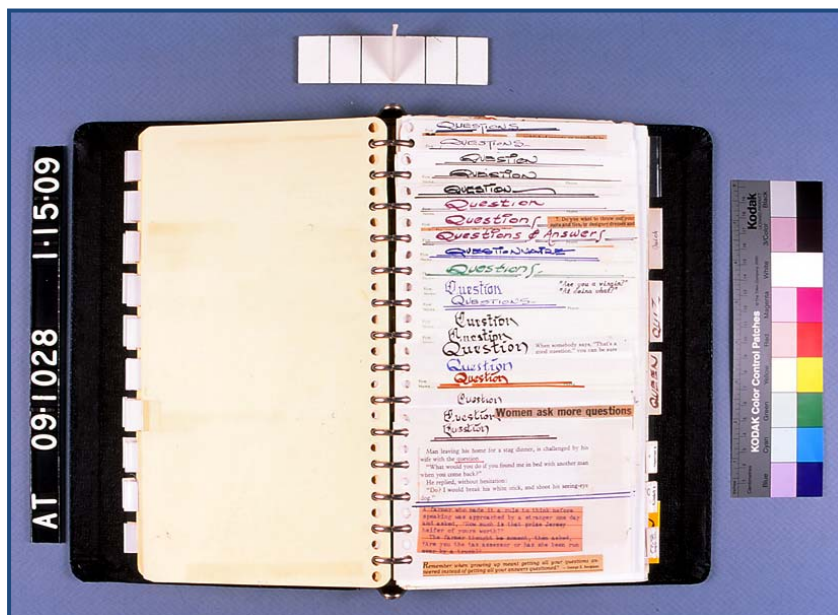 AT 09-1028 1-15-09
QUESTIONS
QUESTIONS
QUESTION
QUESTION
QUESTION
QUESTION
Questions
7. Do you want to throw out your
Questions & Answers
QUESTIONNAIRE
Questions
Question
"Are you a virgin?"
QUESTIONS
Question
Question
Question
When somebody says, "That's a
good question," you can be sure
Question
Question
Question
Question
Women ask more questions
Question
Man leaving his home for a stag dinner, is challenged by his
wife with the question,
"What would you do if you found me in bed with another man
when you come back?"
He replied, without hesitation:
"Do? I would break his white stick, and shoot his seeing-eye
dog."
A farmer who made it a rule to think before
speaking was approached by a stranger one day
and asked, "How much is that prize Jersey
heifer of yours worth?"
The farmer thought a moment, then asked,
"Are you the tax assessor or has she been run
over by a truck?"
Remember when growing up meant getting all your questions an-
swered instead of getting all your answers questioned?
QUIT
QUEEN
Kodak
KODAK Color Control Patches
Blue
Cyan
Green
Yellow
Red
Magenta
White
3/Color
Black